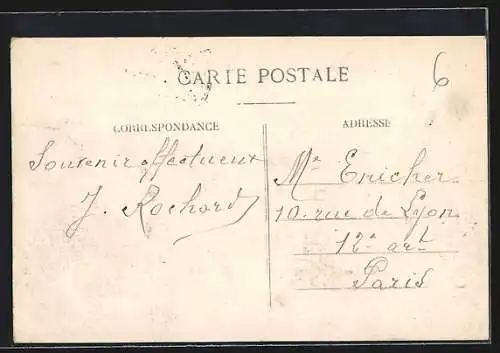 CARTE POSTALE
6
CORRESPONDANCE
ADRESSE
Souvenir affectueux
J. Rochard
Me Enicher
10 rue de Lyon
12e art
Paris